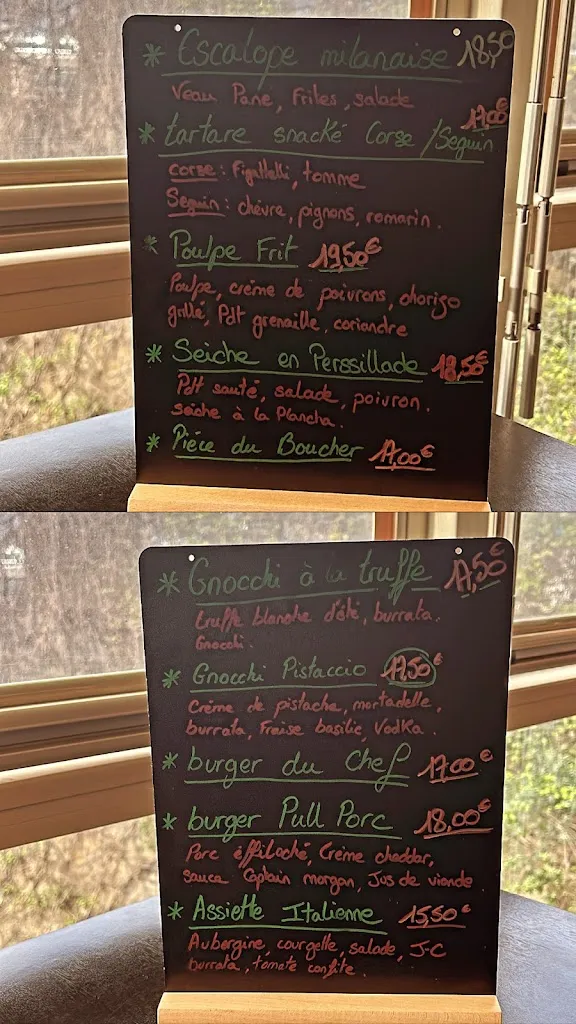 * Escalope milanaise 18,50
Veau Pane, Frites, salade
17,00€
* tartare snacké Corse / Seguin
Corse : Figattelli, tomme
Seguin : chèvre, pignons, romarin.
* Poulpe Frit 19,50€
Poulpe, crème de poivrons, chorizo
grillé, Pdt grenaille, coriandre
* Seiche en Perssillade 18,50€
Pdt sauté, salade, poivron.
seiche à la Plancha.
* Pièce du Boucher 17,00€
* Gnocchi à la truffe 17,50€
truffe blanche d'été, burrata.
Gnocchi.
* Gnocchi Pistaccio 17,50€
Crème de pistache, mortadelle,
burrata, Fraise basilic, Vodka.
* burger du Chef 17,00€
* burger Pull Porc 18,00€
Porc éffiloché, Crème cheddar,
sauce Captain morgan, Jus de viande
* Assiette Italienne 15,50€
Aubergine, courgette, salade, J-C
burrata, tomate confite.